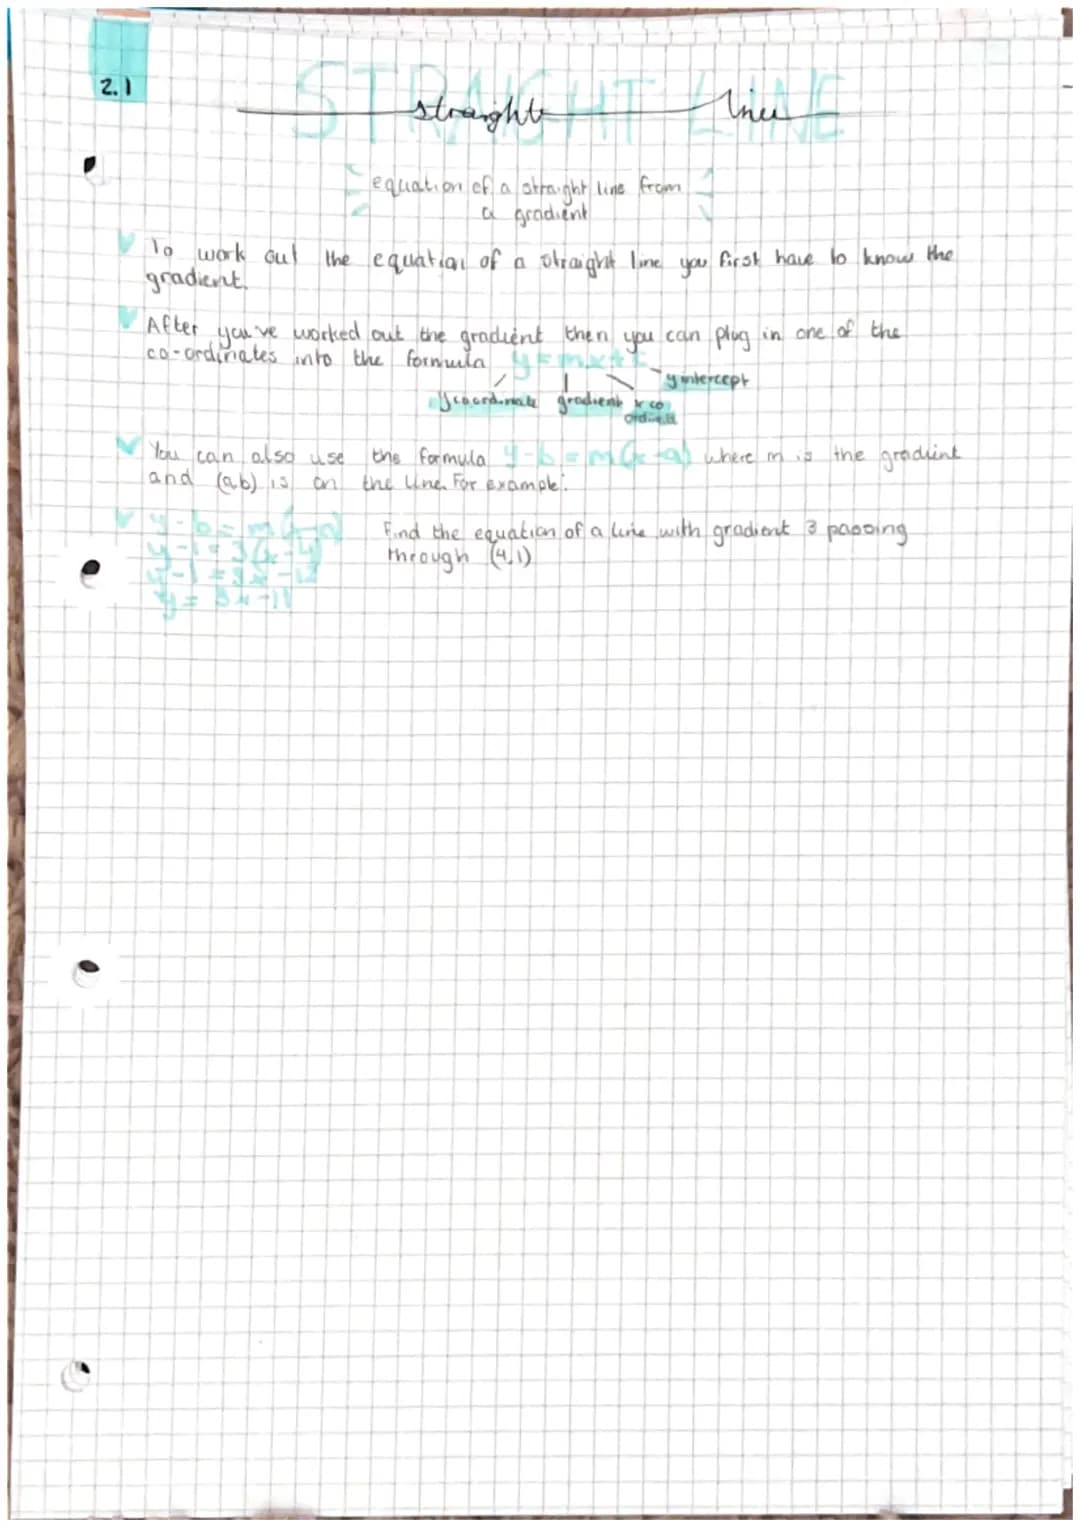 2.1
STRAIGHT LINE
straight line
equation of a straight line from
a gradient
To work out the equation of a straight line you first have to know the
gradient.
After you've worked out the gradient then you can plug in one of the
co-ordinates into the formula y = mx + c
y intercept
y coordinate gradient x co
ordinate
You can also use the formula y-b = m(x-a) where m is the gradient
and (a,b) is on the line. For example:
y-b = m(x-a) Find the equation of a line with gradient 3 passing
y-1 = 3(x-4) through (4,1)
y-1 = 3x-12
y = 3x-11